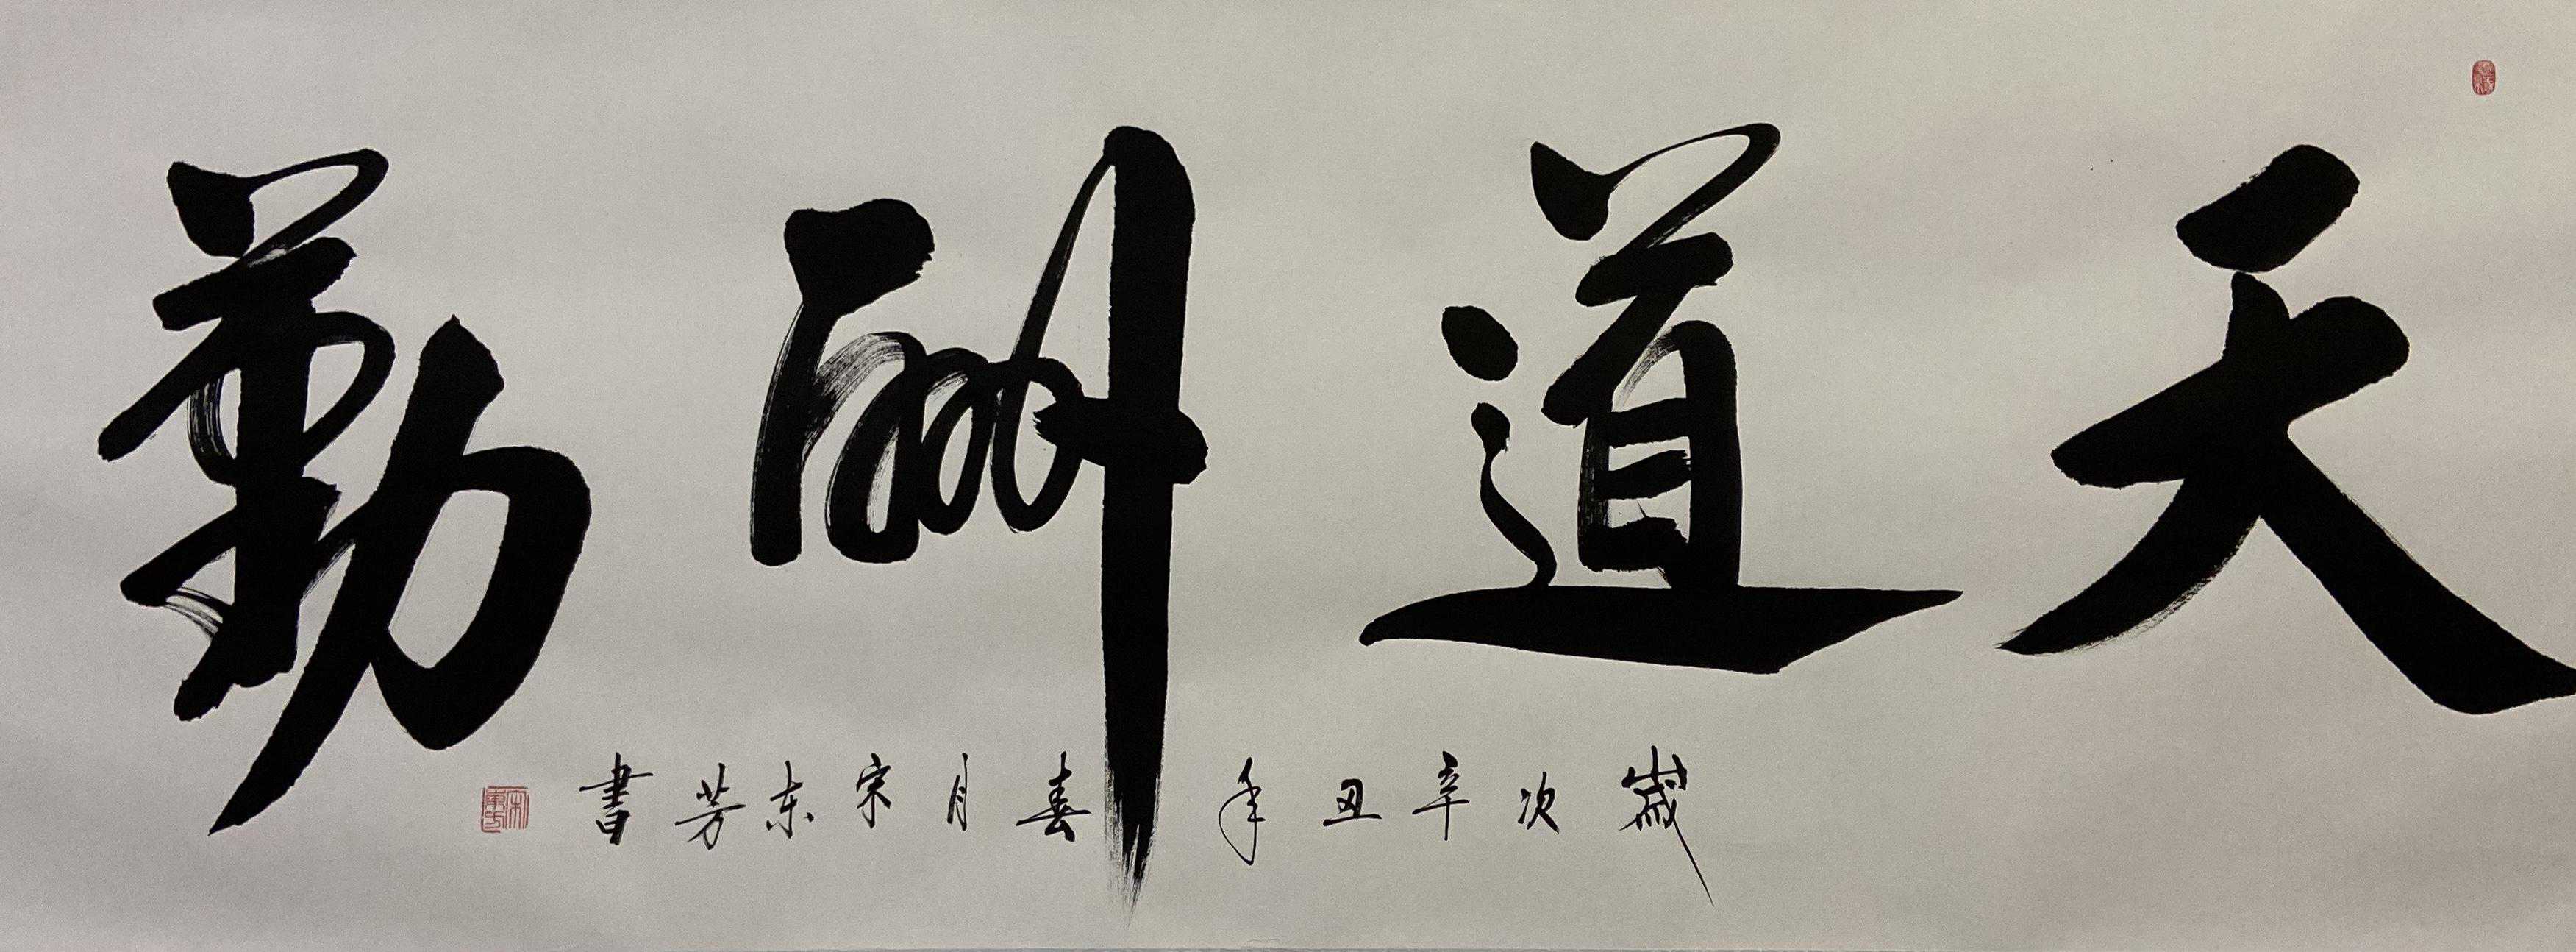 天道酬勤
歲次辛丑年春月宋东芳書